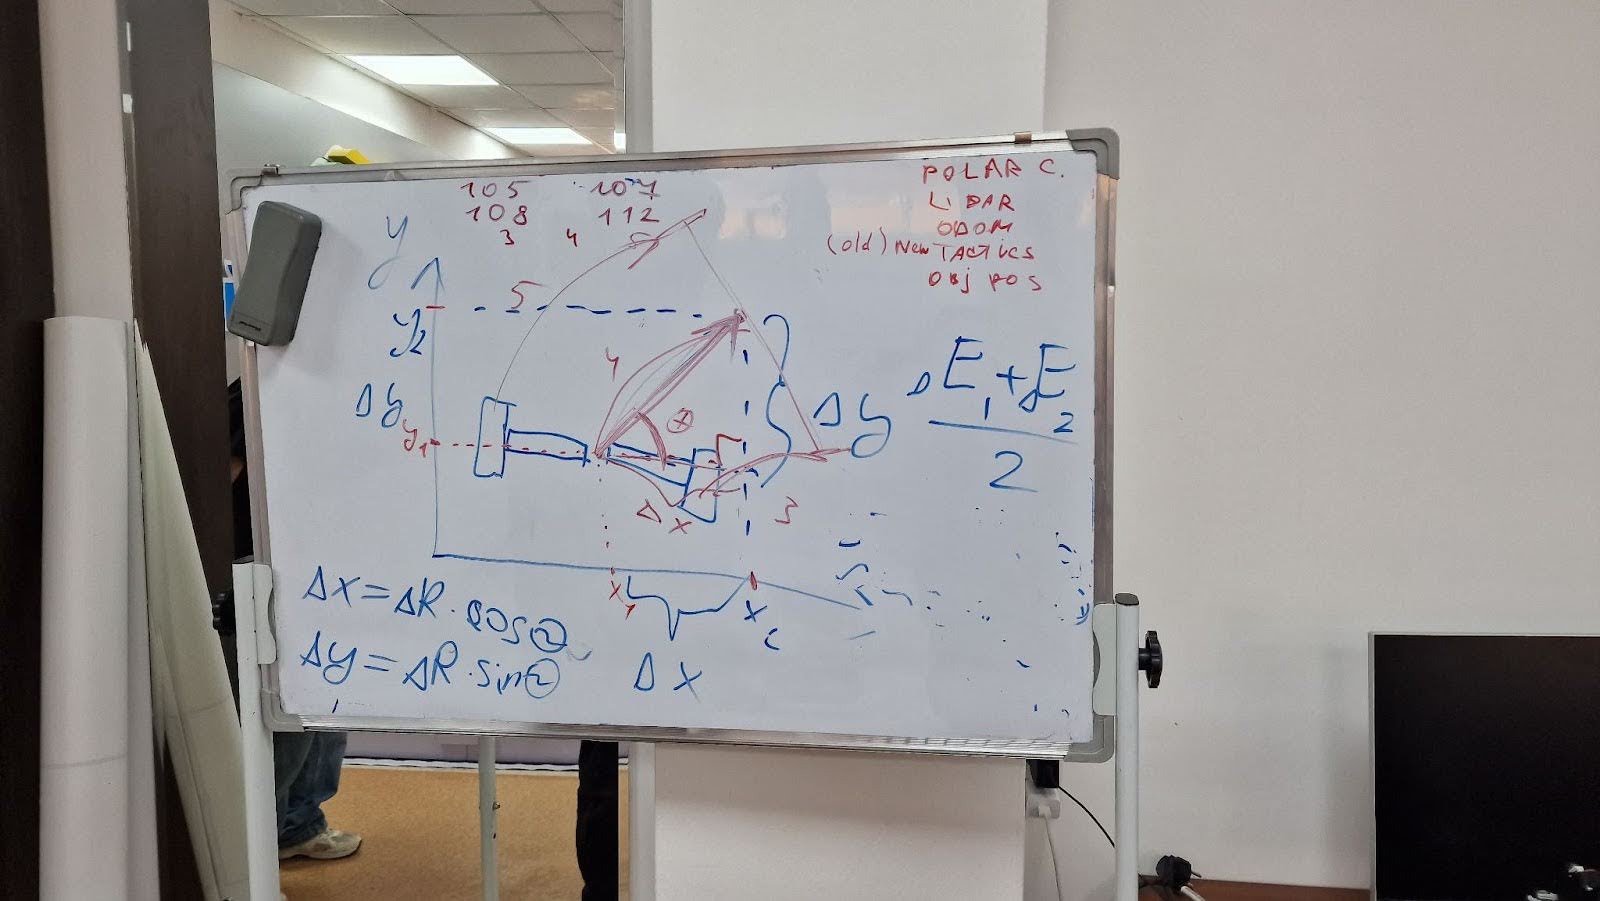 105 107
108 112
3 4
POLAR C.
LIDAR
ODOM
(old) New TACTICS
Obj POS
y
5
y2
4
Δy
y1
Δy
ΔE1 + ΔE2
2
Δx
3
x1
x2
Δx
Δx = ΔR · cos
Δy = ΔR · sin